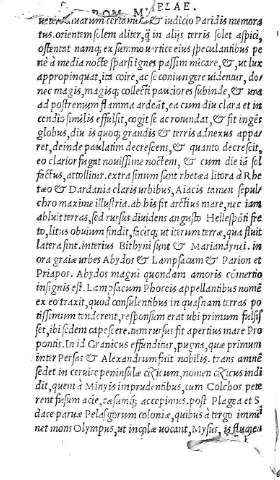 POM. MELAE.
uetere dearum certamine & iudicio Paridis memora
tus. orientem solem aliter, q̃ in alijs terris solet aspici,
ostentat namq; ex summo uertice eius speculantibus pe
nè à media nocte sparsi ignes passim micare, & ut lux
appropinquat, ita coire, ac se coniungere uidentur, do-
nec magis, magisq; collecti pauciores subinde, & una
ad postremum flamma ardeāt, ea cum diu clara et in
cendio similis effulsit, cogit se ac rotundat, & fit ingēs
globus, diu is quoq; grandis & terris adnexus appa
ret, deinde paulatim decrescens, & quanto decrescit,
eo clarior fugat nouissime noctem, & cum die iā sol
factus, attollitur. extra sinum sunt rhetæa litora à Rhe
tæo & Dardania claris urbibus, Aiacis tamen sepul-
chro maxime illustria. ab his fit arctius mare, nec iam
abluit terras, sed rursus diuidens angusto Hellespōti fre
to, litus obuium findit, facitq; ut iterum terræ, qua fluit
latera sint. interius Bithyni sunt & Mariandyni. in
ora graiæ urbes Abydos & Lampsacum & Parion et
Priapos. Abydos magni quondam amoris cōmertio
insignis est. Lampsacum Phoceis appellantibus nomē
ex eo traxit, quod consulentibus in quasnam terras po
tissimum tenderent, responsum erat ubi primum fulsis
set, ibi sedem capessere. tum rursus fit apertius mare Pro
pontis. In id Granicus effunditur, pugna, quæ primum
inter Persas & Alexandrum fuit nobilis. trans amnē
sedet in ceruice peninsulæ Cyzicum, nomen Cyzicus indi
dit, quem à Minyis imprudentibus, cum Colchos pete
rent fusum acie, cæsumq; accepimus. post Placia et S
dace paruæ Pelasgorum coloniæ, quibus à tergo immi
net mons Olympus, ut incolæ uocant, Mysius. is flumen